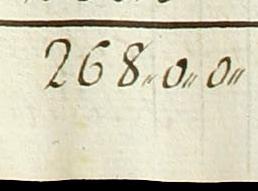 268〃0〃0〃